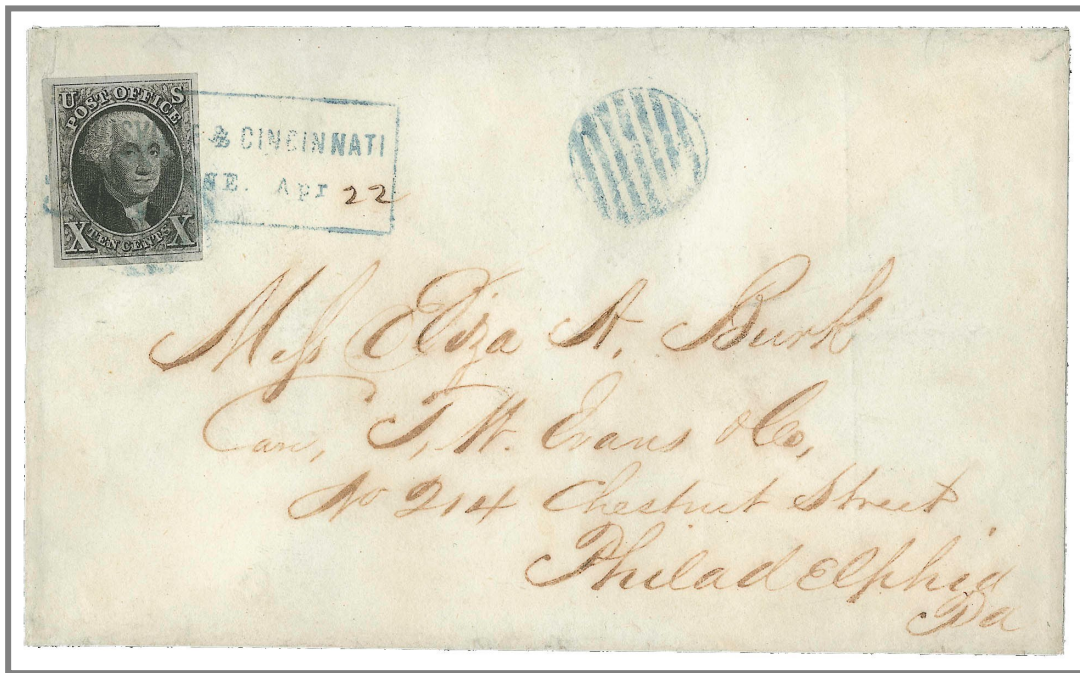 U S
POST OFFICE
X TEN CENTS X
& CINCINNATI
NE. Apr 22
Miss Eliza A. Burk
Care, T, W. Evans & Co,
No 214 Chestnut Street
Philadelphia
Pa